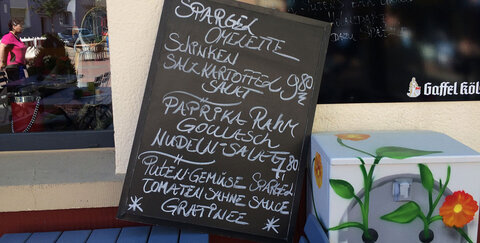 SPARGEL
OMELETTE
SCHINKEN
SALZKARTOFFELN 9,80
SALAT
PAPRIKA RAHM
GOULASCH
NUDELN-SALAT 7,80
PUTEN GEMÜSE SPARGEL
TOMATEN SAHNE SAUCE
GRATINEE
Gaffel Köl